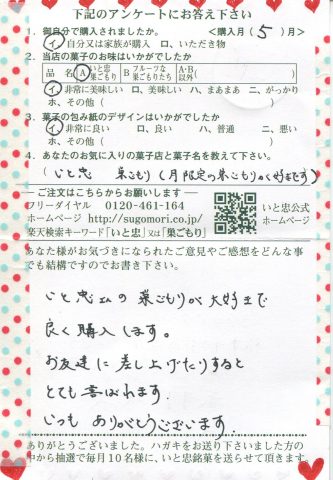 下記のアンケートにお答え下さい
1. 御自分で購入されましたか。 <購入月(5)月>
イ、自分又は家族が購入 ロ、いただき物
2. 当店の菓子のお味はいかがでしたか
品名 A いと忠巣ごもり B フルーツな巣ごもりたち A・B以外( )
イ、非常に美味しい ロ、美味しい ハ、まあまあ ニ、がっかり
ホ、その他( )
3. 菓子の包み紙のデザインはいかがでしたか
イ、非常に良い ロ、良い ハ、普通 ニ、悪い
ホ、その他( )
4. あなたのお気に入りの菓子店と菓子名を教えて下さい。
(いと忠 巣ごもり(月限定の巣ごもりが好きです))
ご注文はこちらからお願いします
フリーダイヤル 0120-461-164
ホームページ http://sugomori.co.jp/
楽天検索キーワード「いと忠」又は「巣ごもり」
いと忠公式
ホームページ
あなた様がお気づきになられたご意見やご感想をどんな事
でも結構ですのでお書き下さい。
いと忠さんの巣ごもりが大好きで
良く購入します。
お友達に差し上げたりすると
とても喜ばれます。
いつもありがとうございます。
ありがとうございました。ハガキをお送り下さいました方の
中から抽選で毎月10名様に、いと忠銘菓を送らせて頂きます